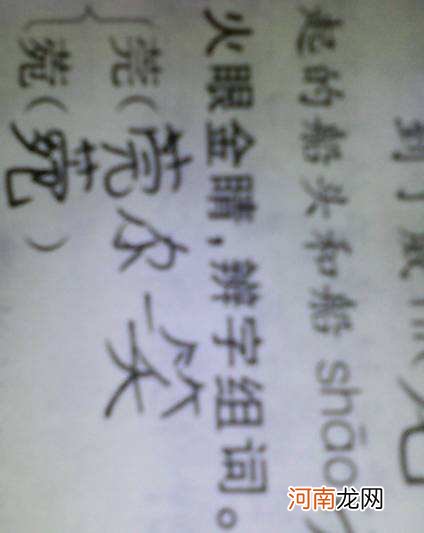 到了
起的船头和船 shāo
火眼金睛,辨字组词。
莞(莞尔一笑
菀(菀 )
河南龙网